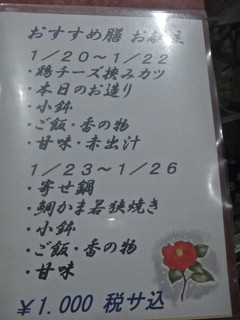 おすすめ膳 お献立
1/20~1/22
・鶏チーズ挟みカツ
・本日のお造り
・小鉢
・ご飯・香の物
・甘味・赤出汁
1/23~1/26
・寄せ鍋
・鯛かま若狭焼き
・小鉢
・ご飯・香の物
・甘味
¥1.000 税サ込